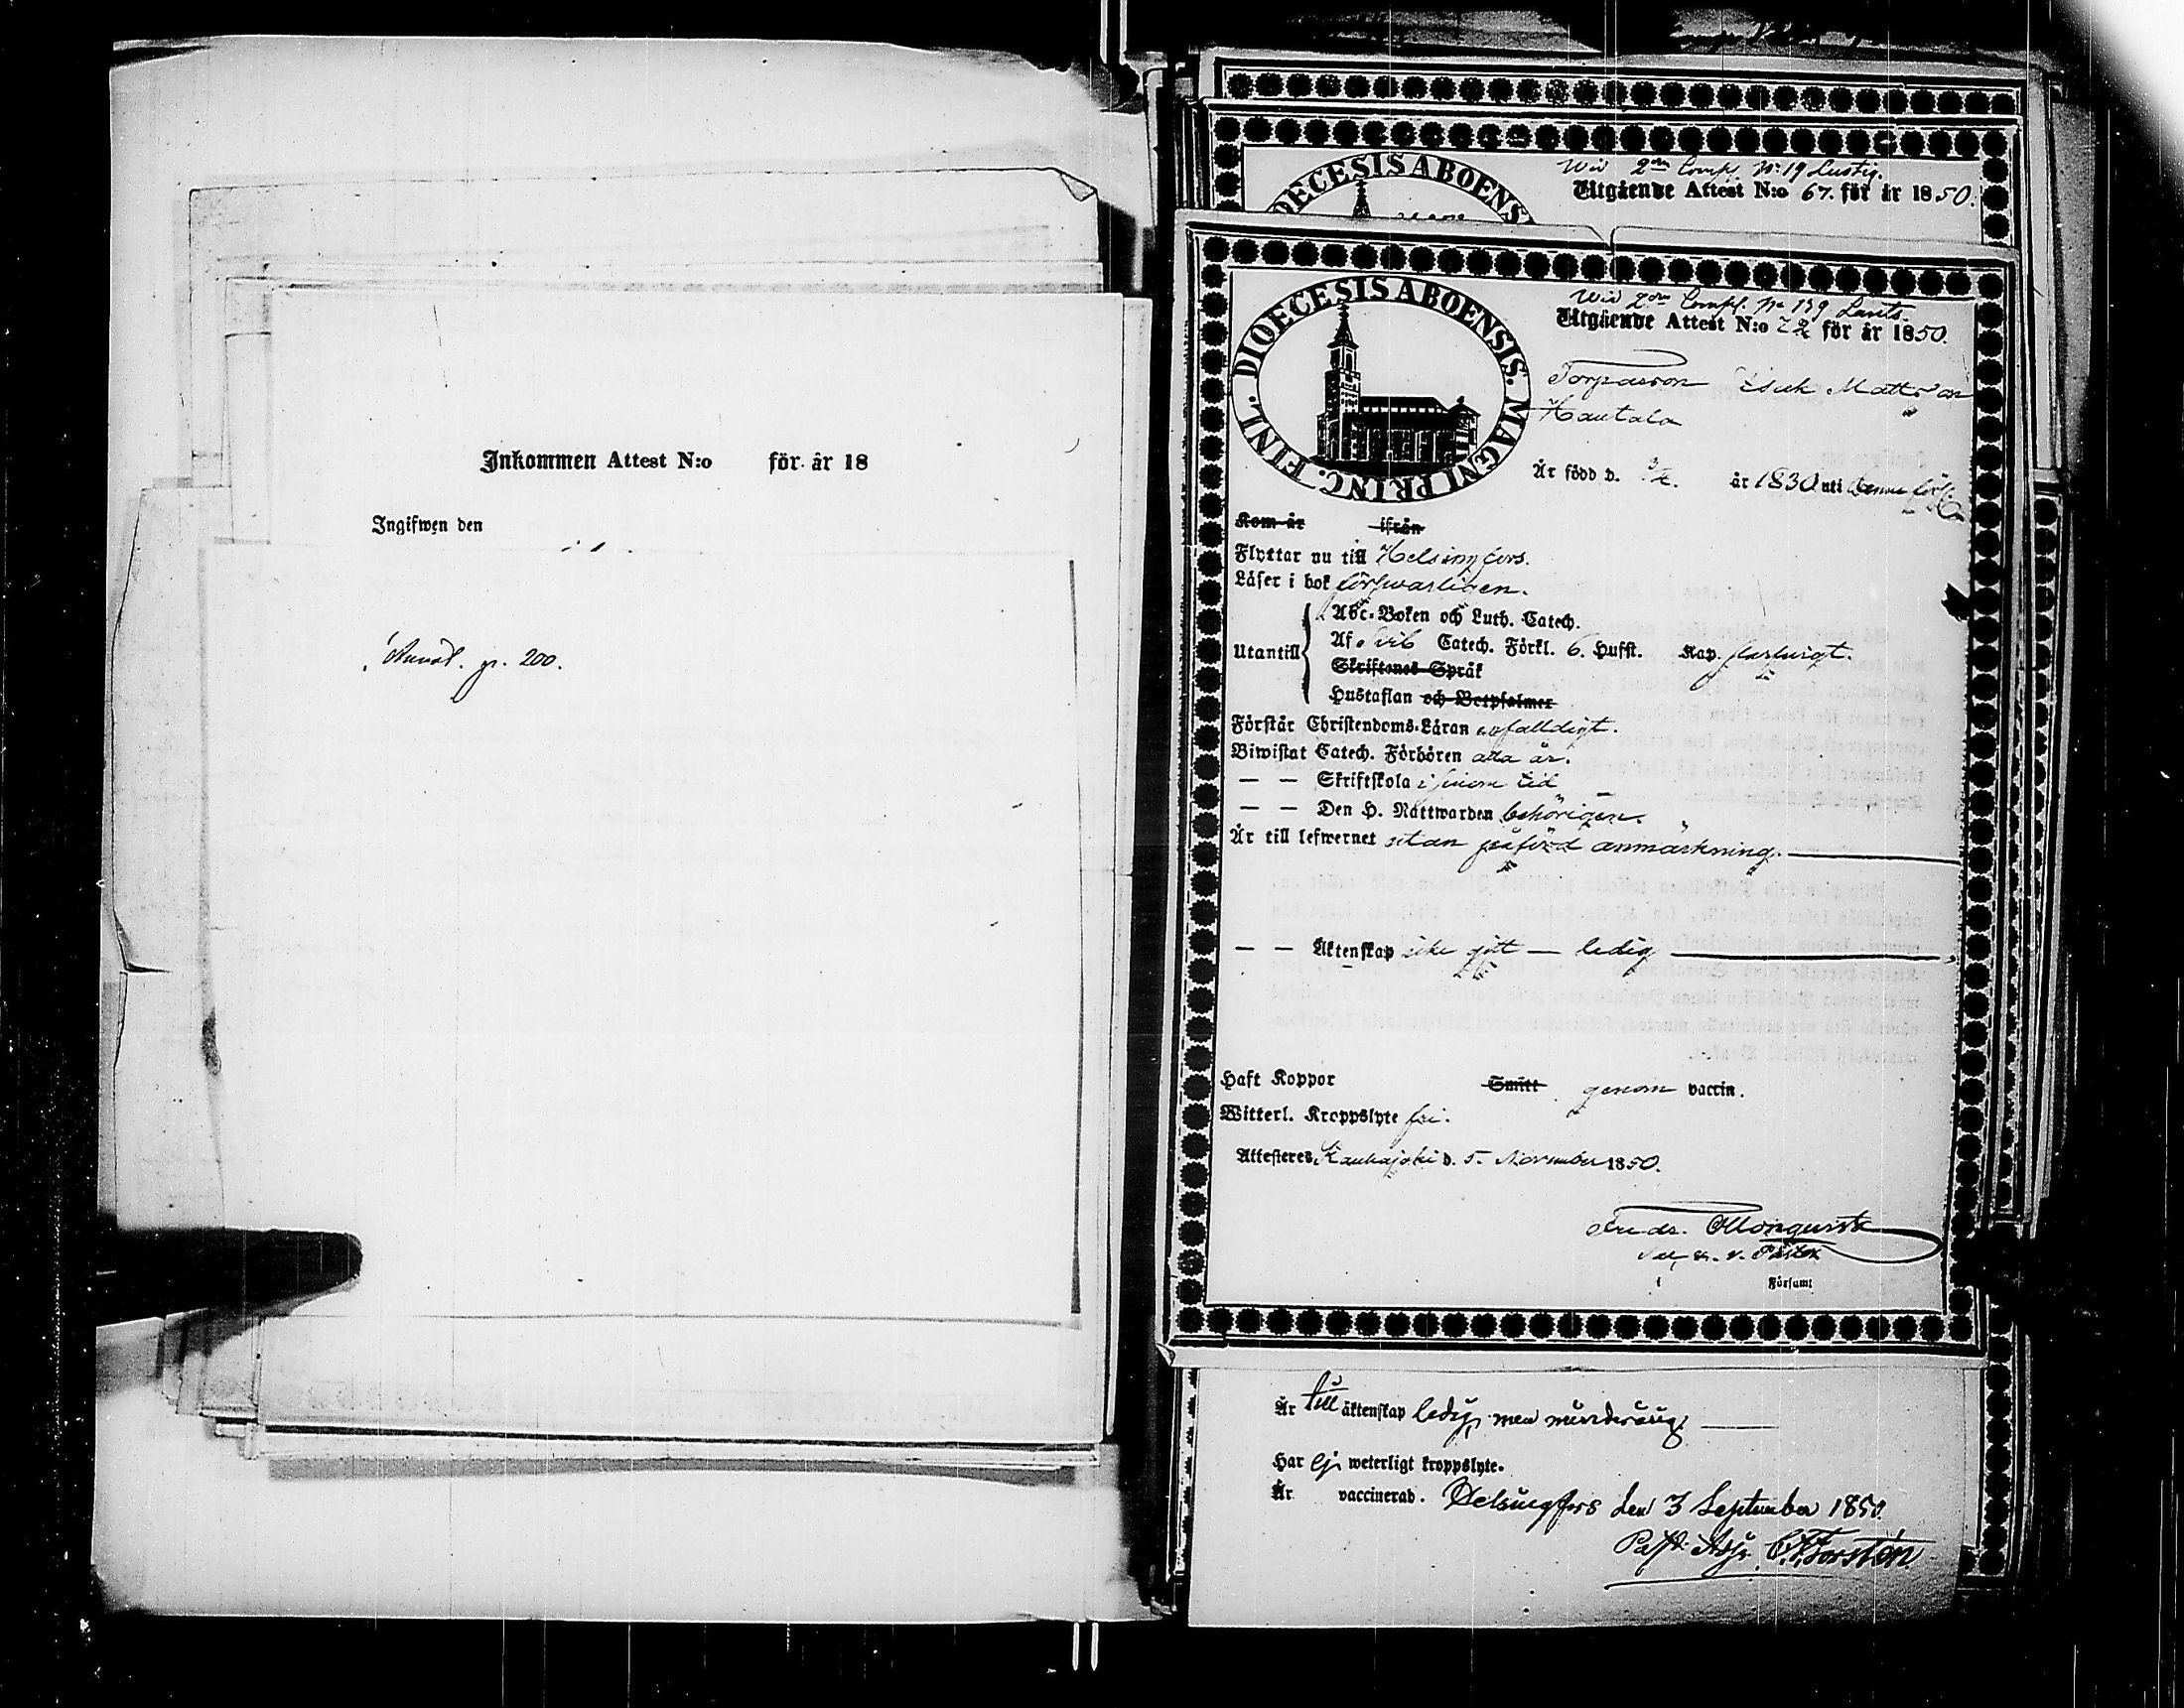 Inkommen Attest N:o för år 18
Ingifwen den
p. 200.
DIOECESIS ABOENSIS
Wid 2dra Comp. No 19 Lustig.
Utgående Attest N:o 67. för år 1850.
DIOECESIS ABOENSIS. MAGNI PRINC. FINL.
Wid 2dra Comp. No 139
Utgående Attest N:o 72 för år 1850.
Torparson Isak Mattsson
Hautala
Är född d. år 1830 uti denna förs.
Kom år ifrån
Flyttar nu till Helsingfors.
Läser i bok försvarligen.
Utantill
Abc-Boken och Luth. Catech.
Af Svib Catech. Förkl. 6. Hufst. Kap. flarhugt.
Skriftenes Språk
Hustaflan och Botpsalmer
Förstår Christendoms-Läran enfalldigt.
Biwistat Catech. Förhören alla år.
— — Skriftskola i sinom tid
— — Den H. Nattwarden behörigen.
Är till lefwernet utan påförd anmärkning.
— — Äktenskap icke gift — ledig
Haft Koppor Smitt genom vaccin.
Witterl. Kroppslyte fri.
Attesteres Kauhajoki d. 5. November 1850.
Fredr.
v. Pastor
i Församl
Är till äktenskap ledig, men minderårig
Har Ej weterligt kroppslyte.
Är vaccinerad. Helsingfors den 3 September 1850.
Past. Adj. Forstén